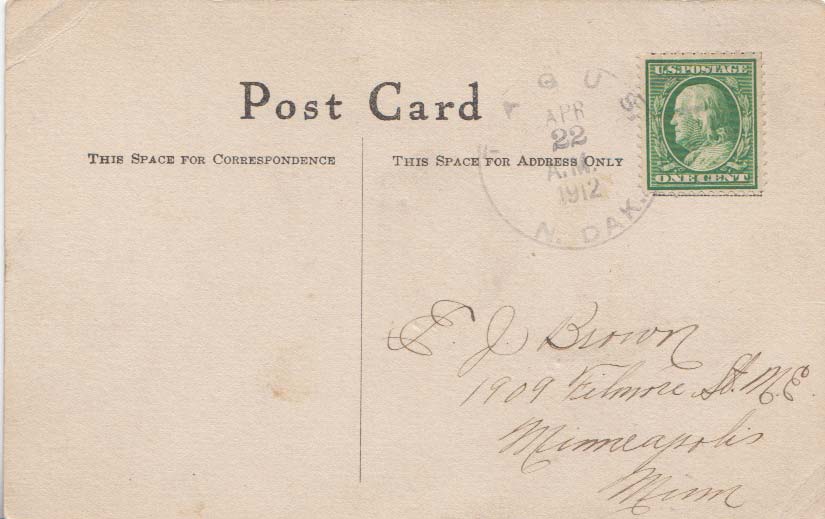 Post Card
THIS SPACE FOR CORRESPONDENCE
THIS SPACE FOR ADDRESS ONLY
TAGUS
APR
22
A.M.
1912
N. DAK.
U.S. POSTAGE
ONE CENT
E. J. Brown
1909 Filmore St. N.E.
Minneapolis
Minn